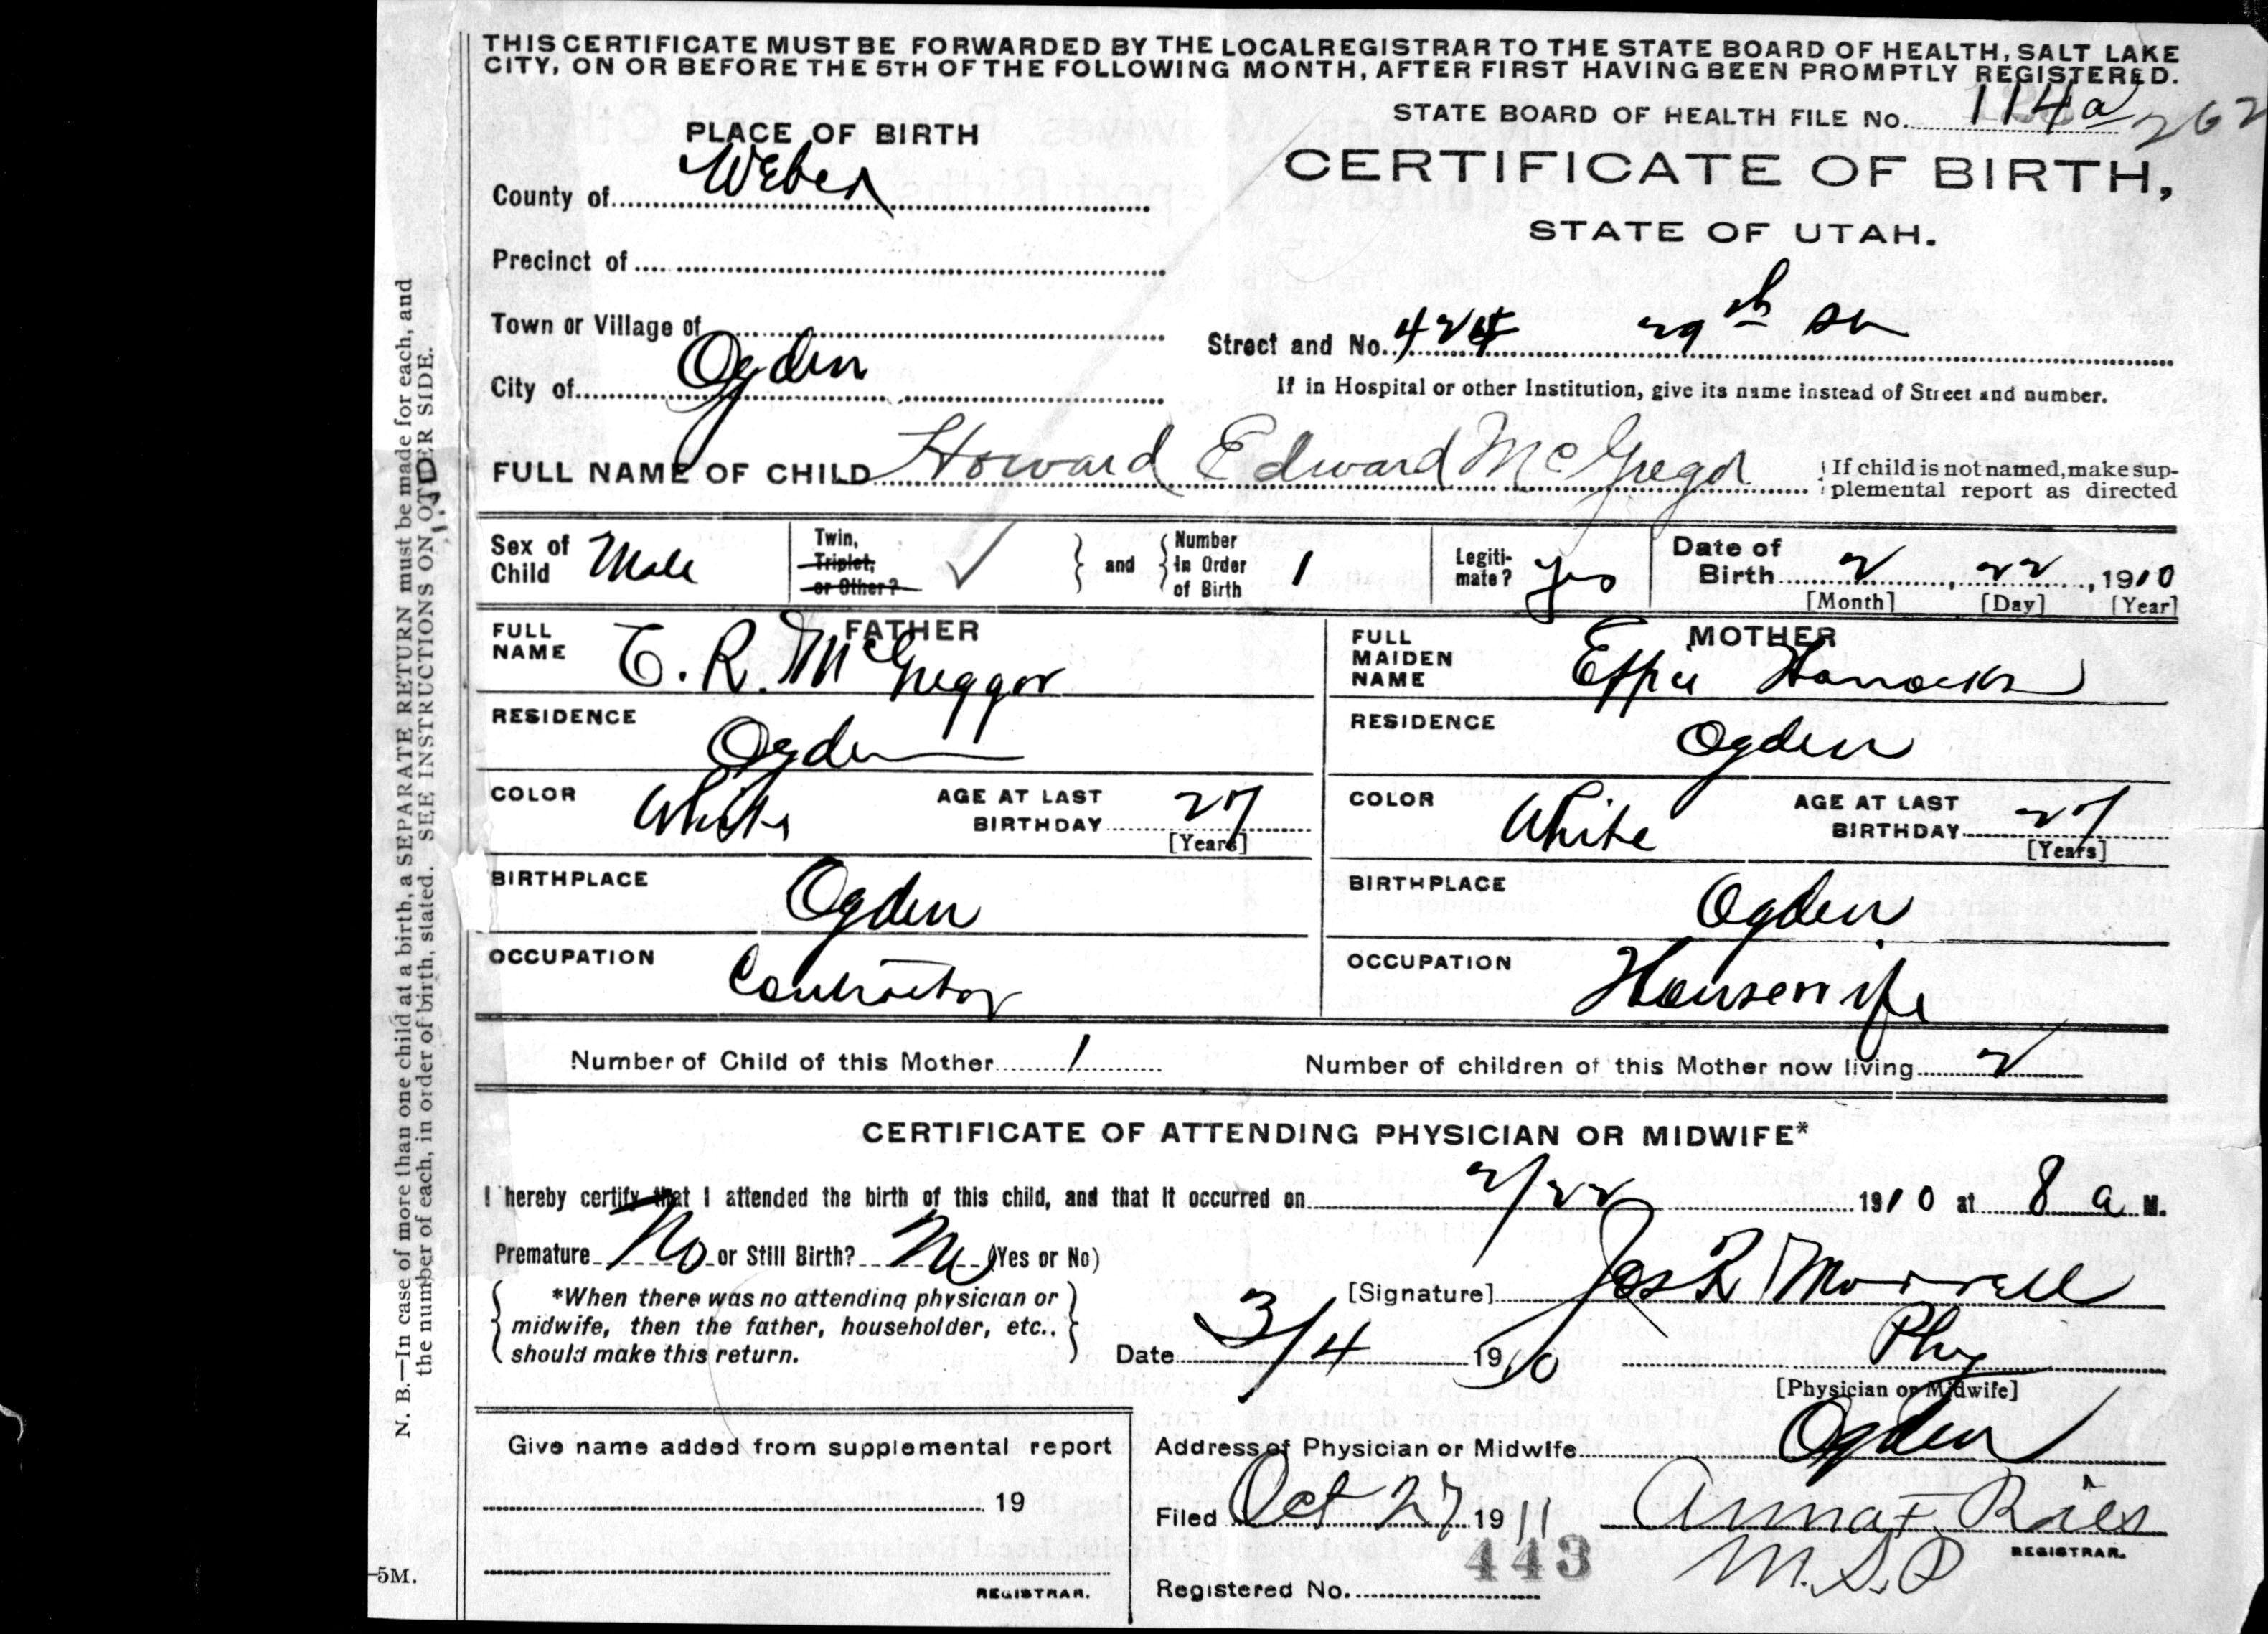 THIS CERTIFICATE MUST BE FORWARDED BY THE LOCAL REGISTRAR TO THE STATE BOARD OF HEALTH, SALT LAKE
CITY, ON OR BEFORE THE 5TH OF THE FOLLOWING MONTH, AFTER FIRST HAVING BEEN PROMPTLY REGISTERED.
STATE BOARD OF HEALTH FILE No. 114a 262
PLACE OF BIRTH
CERTIFICATE OF BIRTH,
STATE OF UTAH.
County of Weber
Precinct of
Town or Village of
Street and No. 424 29th
City of Ogden
If in Hospital or other Institution, give its name instead of Street and number.
FULL NAME OF CHILD Howard Edward McGregor
If child is not named, make sup-
plemental report as directed
Sex of Child Male
Twin, Triplet, or Other? ✓ and Number in Order of Birth 1
Legiti-mate? yes
Date of Birth 2, 22, 1910
[Month] [Day] [Year]
FATHER
FULL NAME C. R. McGreggor
RESIDENCE Ogden
COLOR White AGE AT LAST BIRTHDAY 27
[Years]
BIRTHPLACE Ogden
OCCUPATION Contractor
MOTHER
FULL MAIDEN NAME Effie
RESIDENCE Ogden
COLOR White AGE AT LAST BIRTHDAY 27
[Years]
BIRTHPLACE Ogden
OCCUPATION Housewife
Number of Child of this Mother 1 Number of children of this Mother now living 2
CERTIFICATE OF ATTENDING PHYSICIAN OR MIDWIFE*
I hereby certify that I attended the birth of this child, and that it occurred on 2/22 1910 at 8 a M.
Premature No or Still Birth? No (Yes or No)
*When there was no attending physician or
midwife, then the father, householder, etc.,
should make this return.
[Signature] Jos R Morrell
Date 3/4 1910 Phy
[Physician or Midwife]
Give name added from supplemental report
19
REGISTRAR.
Address of Physician or Midwife Ogden
Filed Oct 27 1911 Anna F. Ries
REGISTRAR.
443
Registered No. M.S.P
N. B.—In case of more than one child at a birth, a SEPARATE RETURN must be made for each, and
the number of each, in order of birth, stated. SEE INSTRUCTIONS ON OTHER SIDE.
IND
-5M.